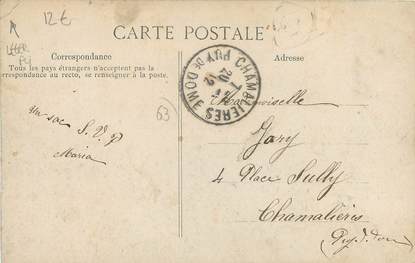 12€
LEGER
PLI
CARTE POSTALE
Correspondance
Tous les pays étrangers n'acceptent pas la
correspondance au recto, se renseigner à la poste.
Adresse
CHAMALIERES PUY DE DOME
63
un sac S.V.P
Maria
Mademoiselle
Gary
4 Place Sully
Chamalières
(Puy. d. Dôme